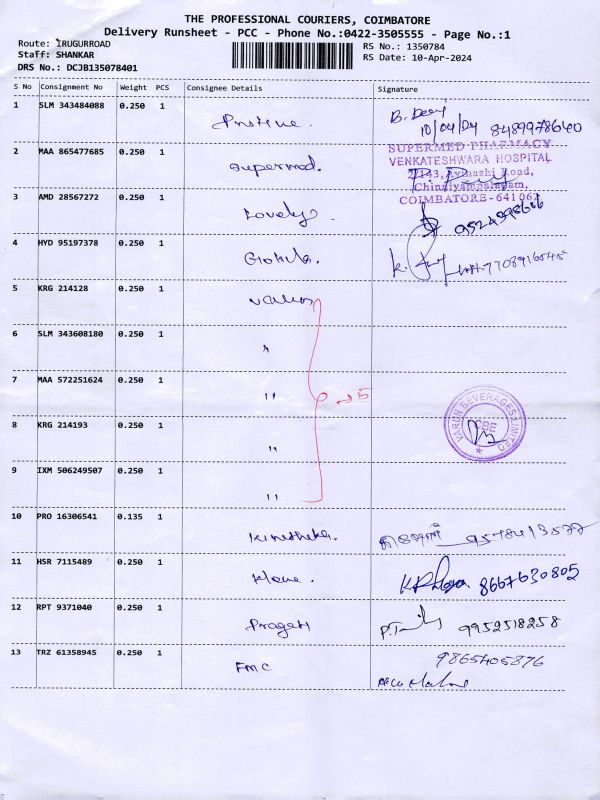 THE PROFESSIONAL COURIERS, COIMBATORE
Delivery Runsheet - PCC - Phone No.:0422-3505555 - Page No.:1
Route: IRUGURROAD
Staff: SHANKAR
DRS No.: DCJB135078401
RS No.: 1350784
RS Date: 10-Apr-2024
S No Consignment No Weight PCS Consignee Details Signature
1 SLM 343484088 0.250 1
10/04/04 8489978640
2 MAA 865477685 0.250 1 Supermed.
SUPERMED PHARMACY
VENKATESHWARA HOSPITAL
COIMBATORE-641062
3 AMD 28567272 0.250 1 Lovely
4 HYD 95197378 0.250 1 Gokula.
7708916045
5 KRG 214128 0.250 1 Varun
6 SLM 343608180 0.250 1 "
7 MAA 572251624 0.250 1 "
5
8 KRG 214193 0.250 1 "
VARUN BEVERAGES LIMITED
CBE
9 IXM 506249507 0.250 1 "
10 PRO 16306541 0.135 1
11 HSR 7115489 0.250 1
8667630805
12 RPT 9371040 0.250 1 Pragati
9952518258
13 TRZ 61358945 0.250 1 FMC
9865405876